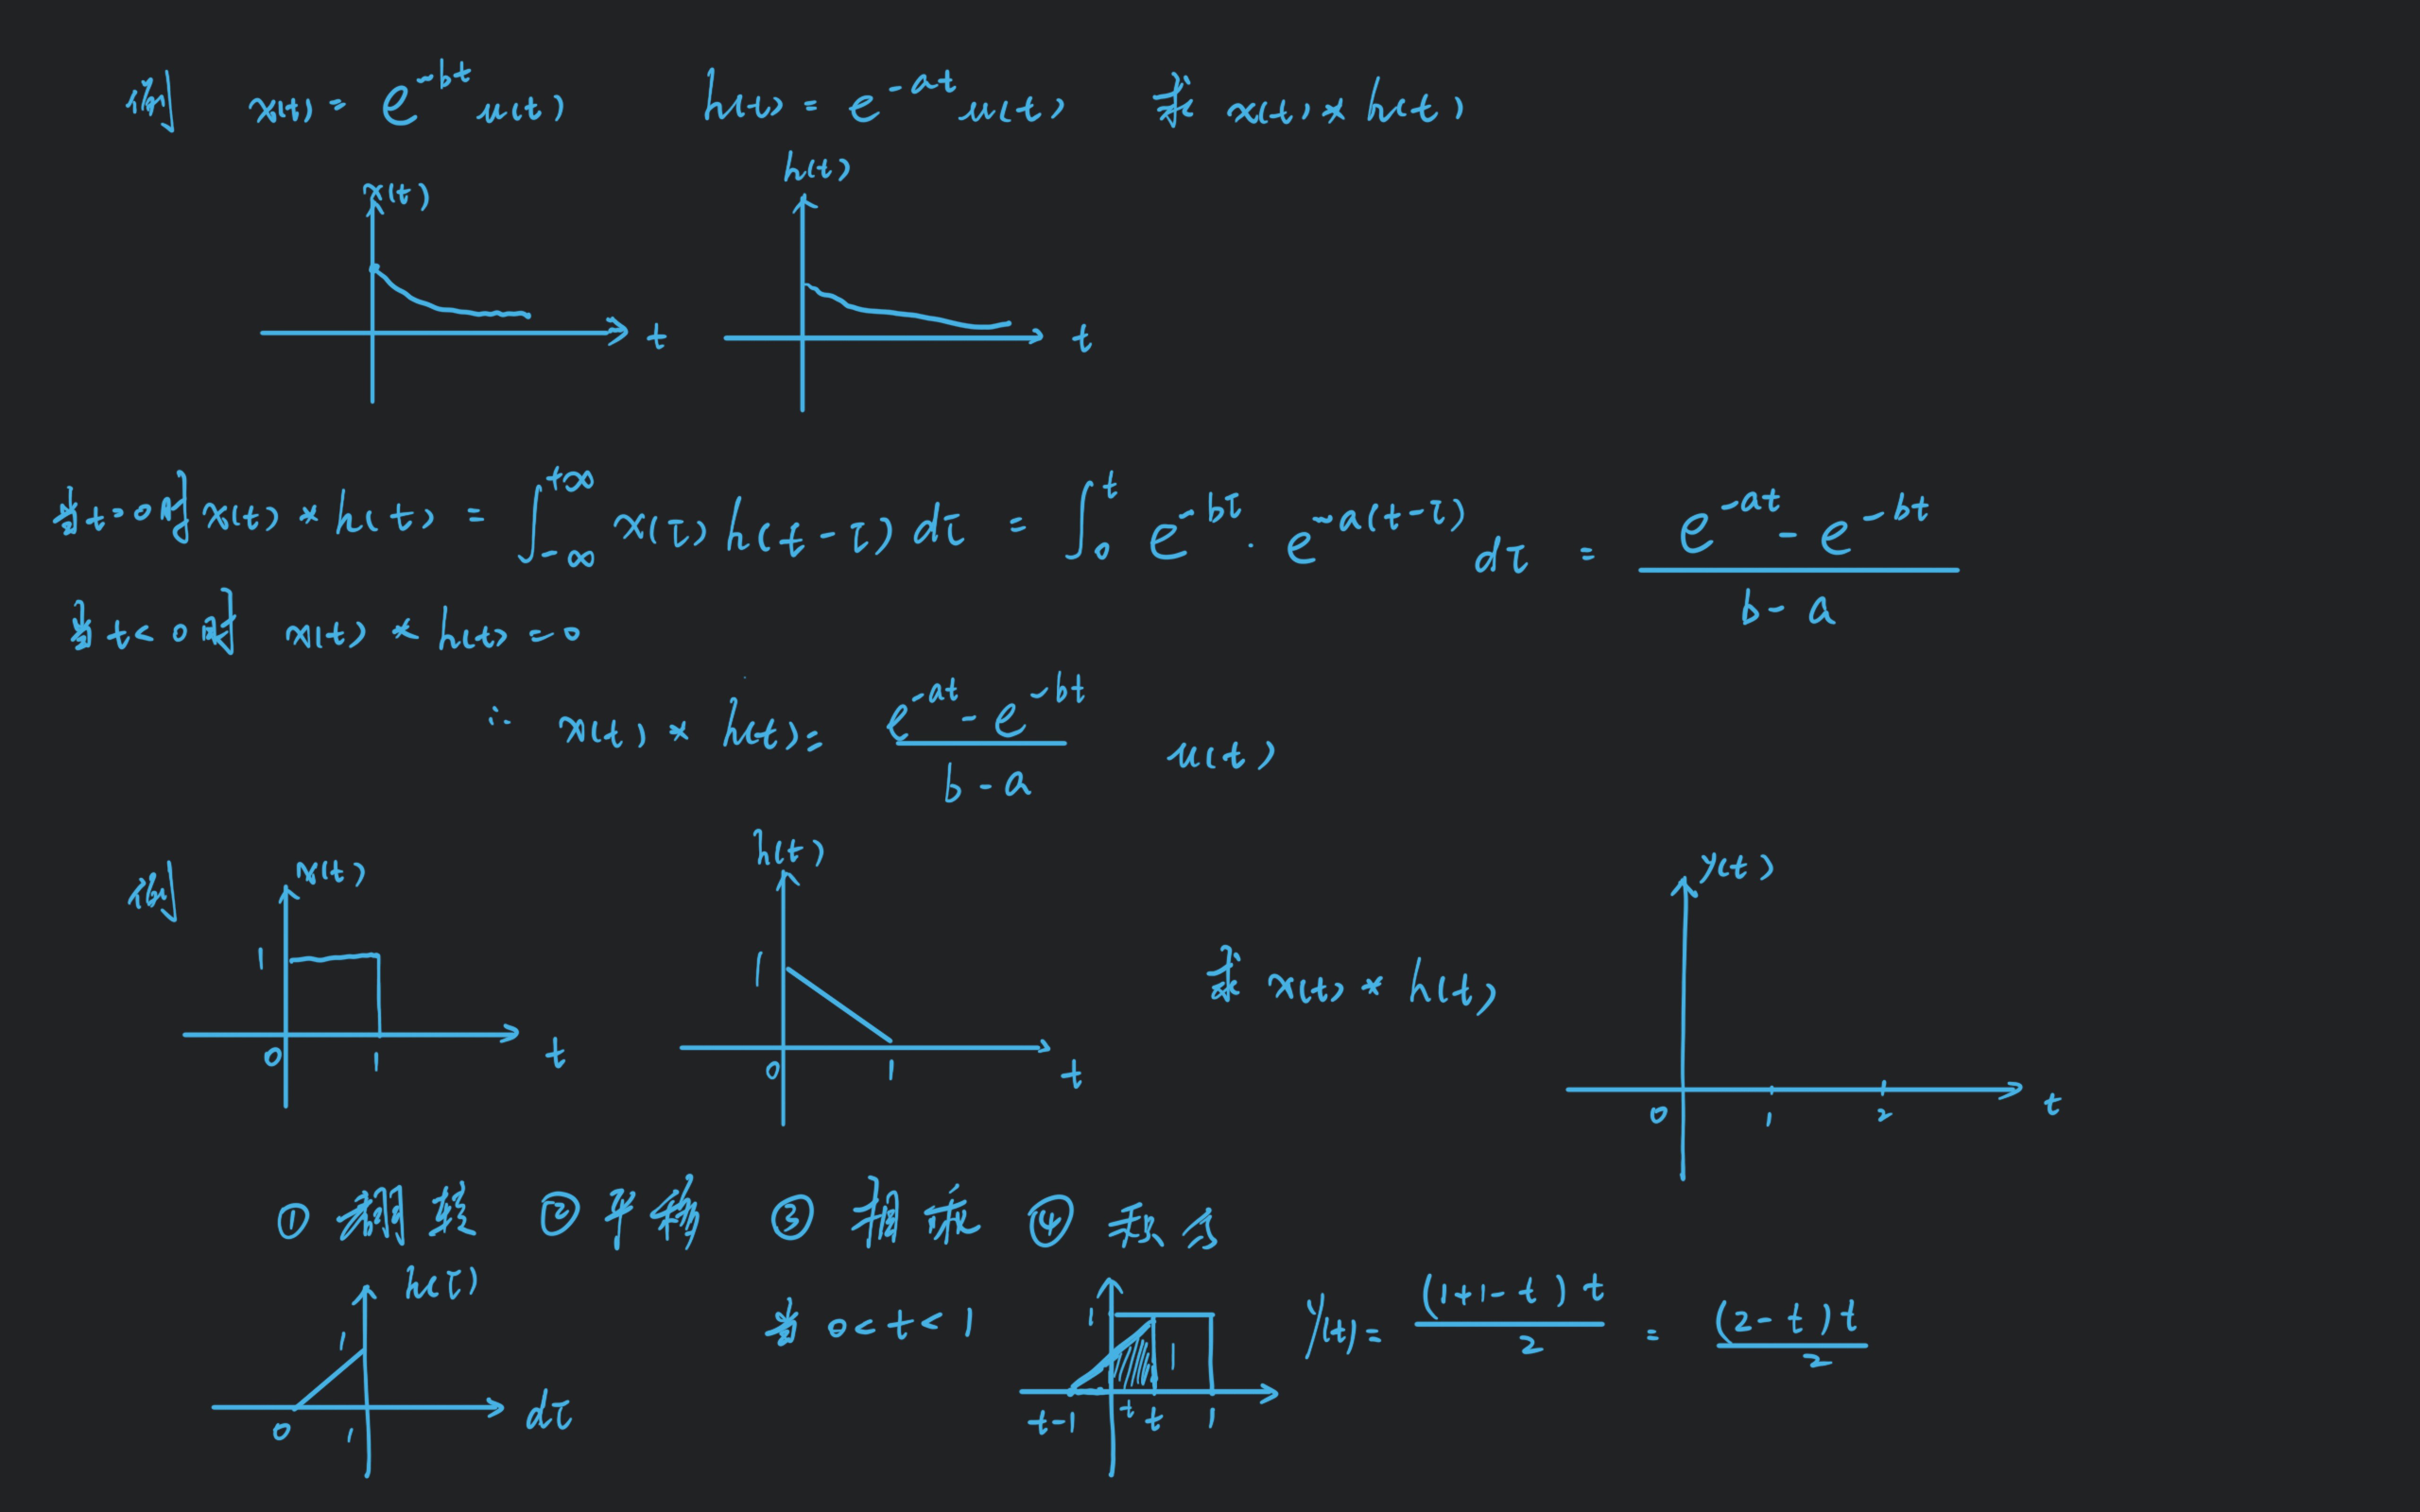 例 x(t) = e^{-bt} u(t) h(t) = e^{-at} u(t) 求 x(t) * h(t)
x(t) h(t)
t t
当t=0时 x(t) * h(t) = ∫_{-∞}^{+∞} x(τ) h(t-τ) dτ = ∫_0^t e^{-bτ} · e^{-a(t-τ)} dτ = \frac{e^{-at} - e^{-bt}}{b-a}
当t<0时 x(t) * h(t) = 0
∴ x(t) * h(t) = \frac{e^{-at} - e^{-bt}}{b-a} u(t)
例 x(t) h(t) y(t)
1 1 求 x(t) * h(t)
0 1 t 0 1 t 0 1 2 t
① 翻转 ② 平移 ③ 相乘 ④ 积分
h(τ) 1 0 1 dτ
当 0<t<1 1 1 t-1 t t 1 y(t) = \frac{(1+1-t)t}{2} = \frac{(2-t)t}{2}